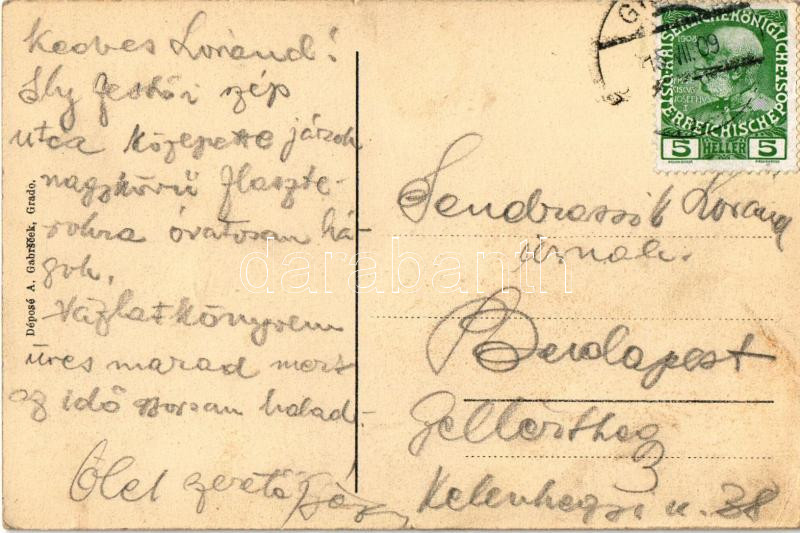 Kedves Lorand!
Ily festői szép
utca közepette járok
nagykövű flaszte-
rokra óvatosan há-
gok.
Vázlatkönyvem
üres marad mert
az idő gorsan halad.
Ölel szerető
Déposé A. Gabršček, Grado.
VII. 09
1908
KAISERLICHE KÖNIGLICHE
ÖSTERREICHISCHE POST
5 HELLER 5
Lorand
úrnak.
Budapest
Gellérthegy
Kelenhegyi u. 38
darabanth